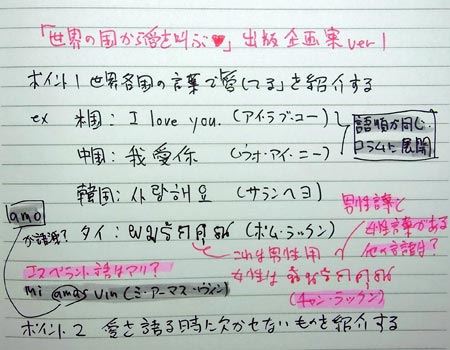 「世界の国から愛を叫ぶ♥」出版企画案 ver 1
ポイント1 世界各国の言葉で「愛してる」を紹介する
ex 米国: I love you. (アイ・ラブ・ユー)
語順が同じ.
コラムに展開
中国: 我愛你 (ウォ・アイ・ニー)
韓国: 사랑해요 (サランヘヨ)
男性語と
女性語がある
他の言語は?
amo
が語源?
タイ: ผมรักคุณ (ポム・ラックン)
これは男性用
女性は ฉันรักคุณ
(チャン・ラックン)
エスペラント語はアリ?
Mi amas vin (ミ・アーマス・ヴィン)
ポイント2 愛を語る時に欠かせないものを紹介する